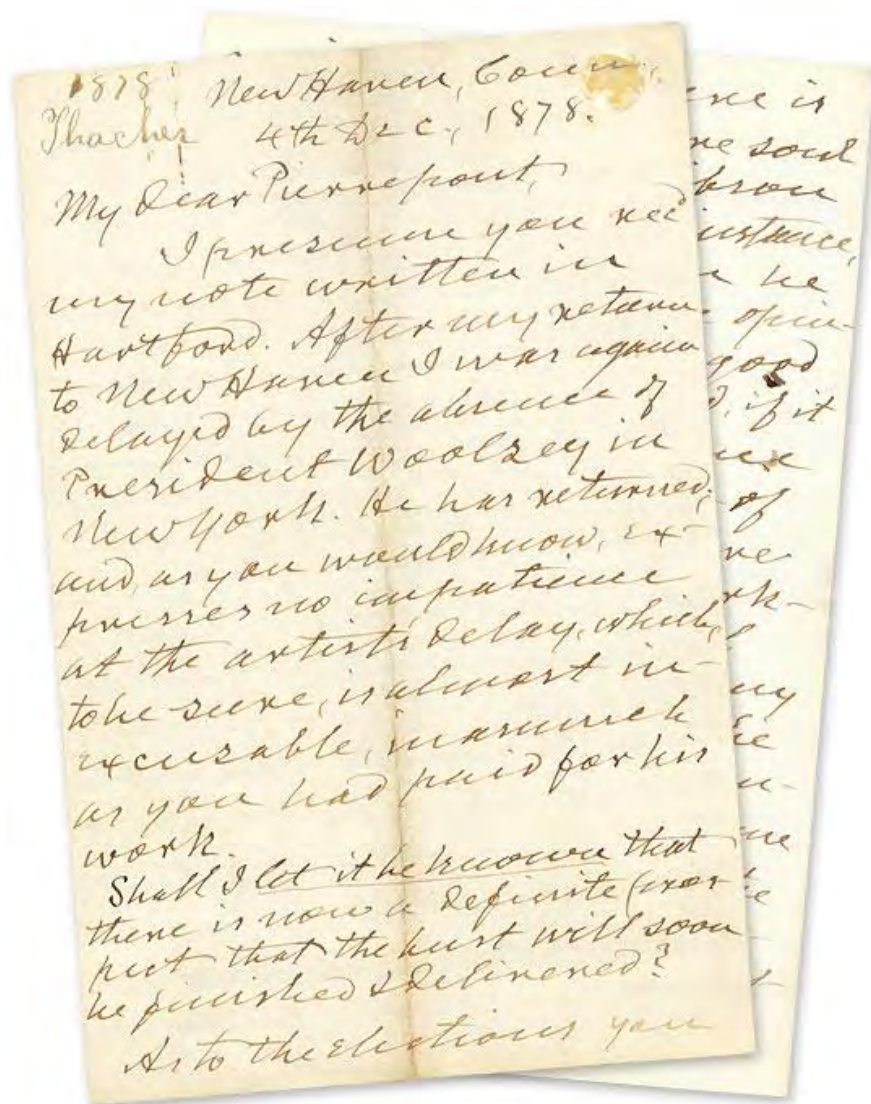 1878
Thacher
New Haven, Conn.,
4th Dec., 1878.
My Dear Pierrepont,
I presume you rec'd
my note written in
Hartford. After my return
to New Haven I was again
delayed by the absence of
President Woolsey in
New York. He has returned;
and, as you would know, ex-
presses no impatience
at the artist's delay, which,
to be sure, is almost in-
excusable, inasmuch
as you had paid for his
work.
Shall I let it be known that
there is now a definite pros-
pect that the bust will soon
be finished & delivered?
As to the elections you
ere is
re soul
instance,
he
opin-
good
d, if it
of
re
rk-
ny
me